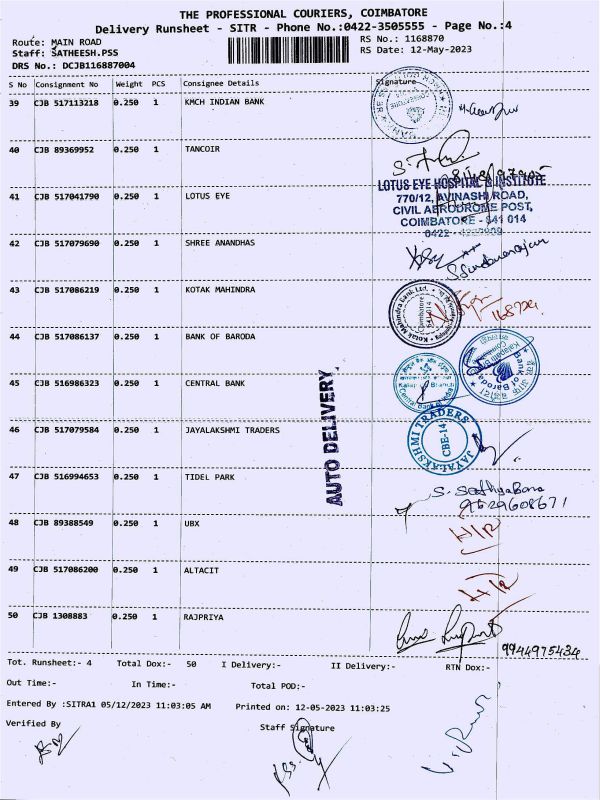 THE PROFESSIONAL COURIERS, COIMBATORE
Delivery Runsheet - SITR - Phone No.:0422-3505555 - Page No.:4
Route: MAIN ROAD
RS No.: 1168870
Staff: SATHEESH.PSS
RS Date: 12-May-2023
DRS No.: DCJB116887004
S No Consignment No Weight PCS Consignee Details Signature
39 CJB 517113218 0.250 1 KMCH INDIAN BANK
40 CJB 89369952 0.250 1 TANCOIR
41 CJB 517041790 0.250 1 LOTUS EYE
LOTUS EYE HOSPITAL & INSTITUTE
770/12, AVINASHI ROAD,
CIVIL AERODROME POST,
COIMBATORE - 641 014
0422 -
42 CJB 517079690 0.250 1 SHREE ANANDHAS
43 CJB 517086219 0.250 1 KOTAK MAHINDRA
Kotak Mahindra Bank Ltd.
Coimbatore
641 014
44 CJB 517086137 0.250 1 BANK OF BARODA
Bank of Baroda
45 CJB 516986323 0.250 1 CENTRAL BANK
Central Bank of India
46 CJB 517079584 0.250 1 JAYALAKSHMI TRADERS
JAYALAKSHMI TRADERS
CBE-14
AUTO DELIVERY
47 CJB 516994653 0.250 1 TIDEL PARK
48 CJB 89388549 0.250 1 UBX
H/R
49 CJB 517086200 0.250 1 ALTACIT
H/R
50 CJB 1308883 0.250 1 RAJPRIYA
9944975434
Tot. Runsheet:- 4 Total Dox:- 50 I Delivery:- II Delivery:- RTN Dox:-
Out Time:- In Time:- Total POD:-
Entered By :SITRA1 05/12/2023 11:03:05 AM Printed on: 12-05-2023 11:03:25
Verified By Staff Signature